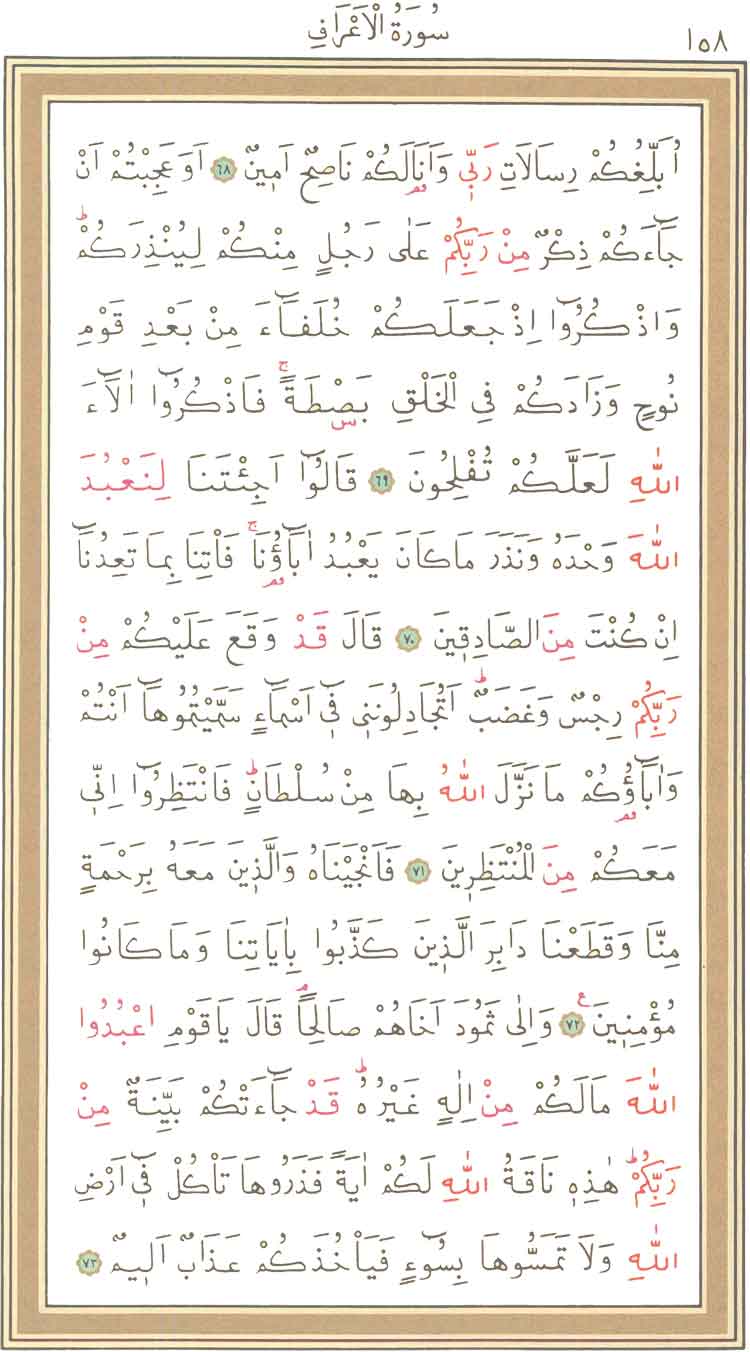 سُورَةُ الْاَعْرَافِ ١٥٨
اُبَلِّغُكُمْ رِسَالَاتِ رَبّ۪ي وَاَنَا۬ لَكُمْ نَاصِحٌ اَم۪ينٌ ﴿٦٨﴾ اَوَعَجِبْتُمْ اَنْ
جَٓاءَكُمْ ذِكْرٌ مِنْ رَبِّكُمْ عَلٰى رَجُلٍ مِنْكُمْ لِيُنْذِرَكُمْۜ
وَاذْكُرُٓوا اِذْ جَعَلَكُمْ خُلَفَٓاءَ مِنْ بَعْدِ قَوْمِ
نُوحٍ وَزَادَكُمْ فِي الْخَلْقِ بَصْۣطَةًۚ فَاذْكُرُٓوا اٰلَٓاءَ
اللّٰهِ لَعَلَّكُمْ تُفْلِحُونَ ﴿٦٩﴾ قَالُٓوا اَجِئْتَنَا لِنَعْبُدَ
اللّٰهَ وَحْدَهُ وَنَذَرَ مَا كَانَ يَعْبُدُ اٰبَٓاؤُ۬نَاۚ فَاْتِنَا بِمَا تَعِدُنَٓا
اِنْ كُنْتَ مِنَ الصَّادِق۪ينَ ﴿٧٠﴾ قَالَ قَدْ وَقَعَ عَلَيْكُمْ مِنْ
رَبِّكُمْ رِجْسٌ وَغَضَبٌۜ اَتُجَادِلُونَن۪ي ف۪ٓي اَسْمَٓاءٍ سَمَّيْتُمُوهَٓا اَنْتُمْ
وَاٰبَٓاؤُ۬كُمْ مَا نَزَّلَ اللّٰهُ بِهَا مِنْ سُلْطَانٍۜ فَانْتَظِرُٓوا اِنّ۪ي
مَعَكُمْ مِنَ الْمُنْتَظِر۪ينَ ﴿٧١﴾ فَاَنْجَيْنَاهُ وَالَّذ۪ينَ مَعَهُ بِرَحْمَةٍ
مِنَّا وَقَطَعْنَا دَابِرَ الَّذ۪ينَ كَذَّبُوا بِاٰيَاتِنَا وَمَا كَانُوا
مُؤْمِن۪ينَ۟ ﴿٧٢﴾ وَاِلٰى ثَمُودَ اَخَاهُمْ صَالِحًاۢ قَالَ يَا قَوْمِ اعْبُدُوا
اللّٰهَ مَا لَكُمْ مِنْ اِلٰهٍ غَيْرُهُۜ قَدْ جَٓاءَتْكُمْ بَيِّنَةٌ مِنْ
رَبِّكُمْۜ هٰذِه۪ نَاقَةُ اللّٰهِ لَكُمْ اٰيَةً فَذَرُوهَا تَأْكُلْ ف۪ٓي اَرْضِ
اللّٰهِ وَلَا تَمَسُّوهَا بِسُٓوءٍ فَيَأْخُذَكُمْ عَذَابٌ اَل۪يمٌ ﴿٧٣﴾